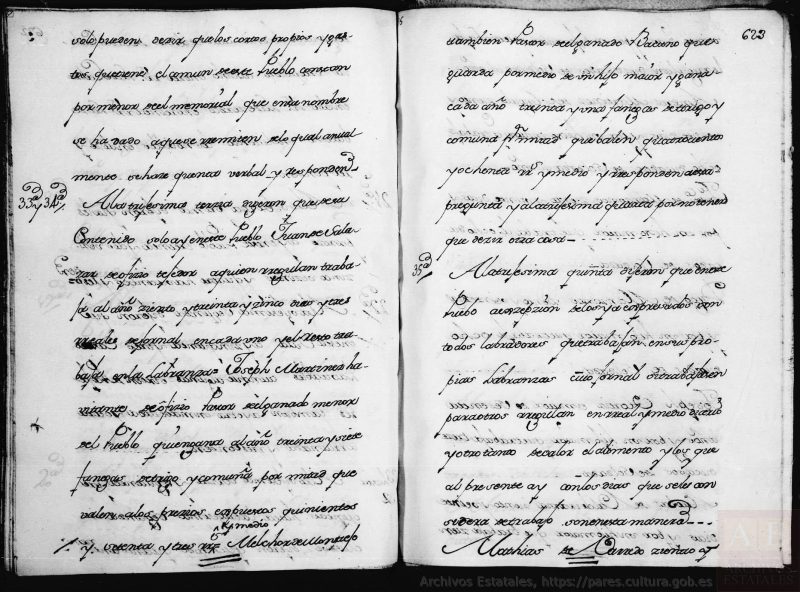 solo pueden dezir que los cortos propios y gas-
tos que tiene el comun de este Pueblo constan
por menor del memorial que en su nombre
se ha dado a que se rremiten de lo qual anual
mente se haze quenta verbal y rresponden
33ª y 34ª
A la trijesima terzia dijeron que de su
Contenido solo ay en este Pueblo Juan de Sala-
zar de ofizio tejedor a quien rregulan traba-
ja al año ziento y treinta y zinco dias y tres
rreales de jornal en cada uno y el resto tra-
baja en la labranza Joseph Martinez ha-
vitante de ofizio Pastor del ganado menor
del Pueblo que gana al año treinta y siete
fanegas de trigo y comuña por mitad que
valen a los prezios expuestos quinientos
y setenta y tres rrs y medio Melchor de Montejo
623
tambien Pastor del ganado Bacuno que
guarda por medio de un hijo maior y gana
cada año treinta y una fanegas de trigo y
comuña por mitad que balen quatrocientos
y ochenta rrs y medio y rresponden a esta
pregunta y a la trijesima quarta por no tener
que dezir otra cosa
35ª
A la trijesima quinta dijeron que en este
Pueblo a eszepzion de los ya expresados son
todos labradores que trabajan en sus pro-
pias labranzas cuio jornal si trabajasen
para otros arreglan en rreal y medio diario
y otro tanto de valor el alimento y los que
al presente ay con los dias que se les con
sidera de trabajo son en esta manera
Mathias de ziento ay
Archivos Estatales, https://pares.cultura.gob.es
ARCHIVOS ESTATALES